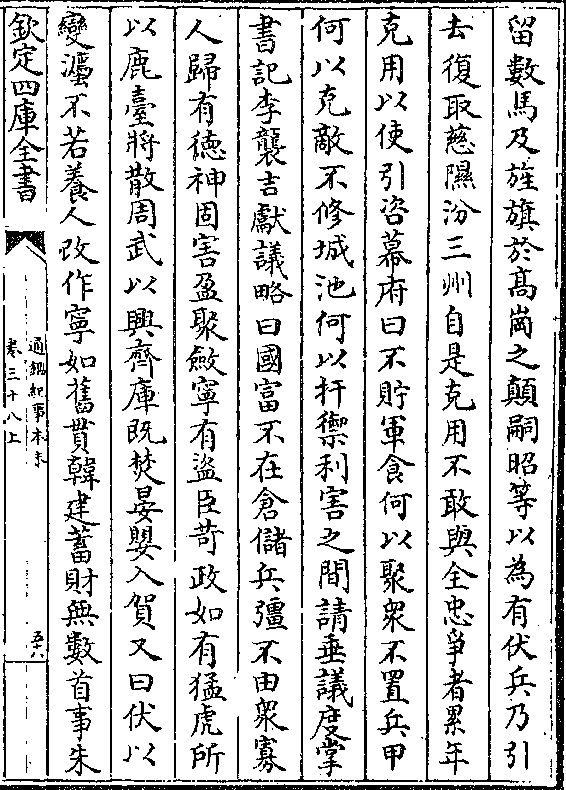 留數馬及旌旗於髙崗之顛嗣昭等以為有伏兵乃引
去復取慈隰汾三州自是克用不敢與全忠爭者累年
克用以使引咨幕府曰不貯軍食何以聚衆不置兵甲
何以克敵不修城池何以扞禦利害之間請垂議度掌
書記李襲吉獻議略曰國富不在倉儲兵彊不由衆寡
人歸有徳神固害盈聚斂寧有盜臣苛政如有猛虎所
以鹿臺將散周武以興齊庫既焚晏嬰入賀又曰伏以
變灋不若養人改作寧如舊貫韓建蓄財無數首事朱
欽定四庫全書
通鑑紀事本末
卷三十八上
五六